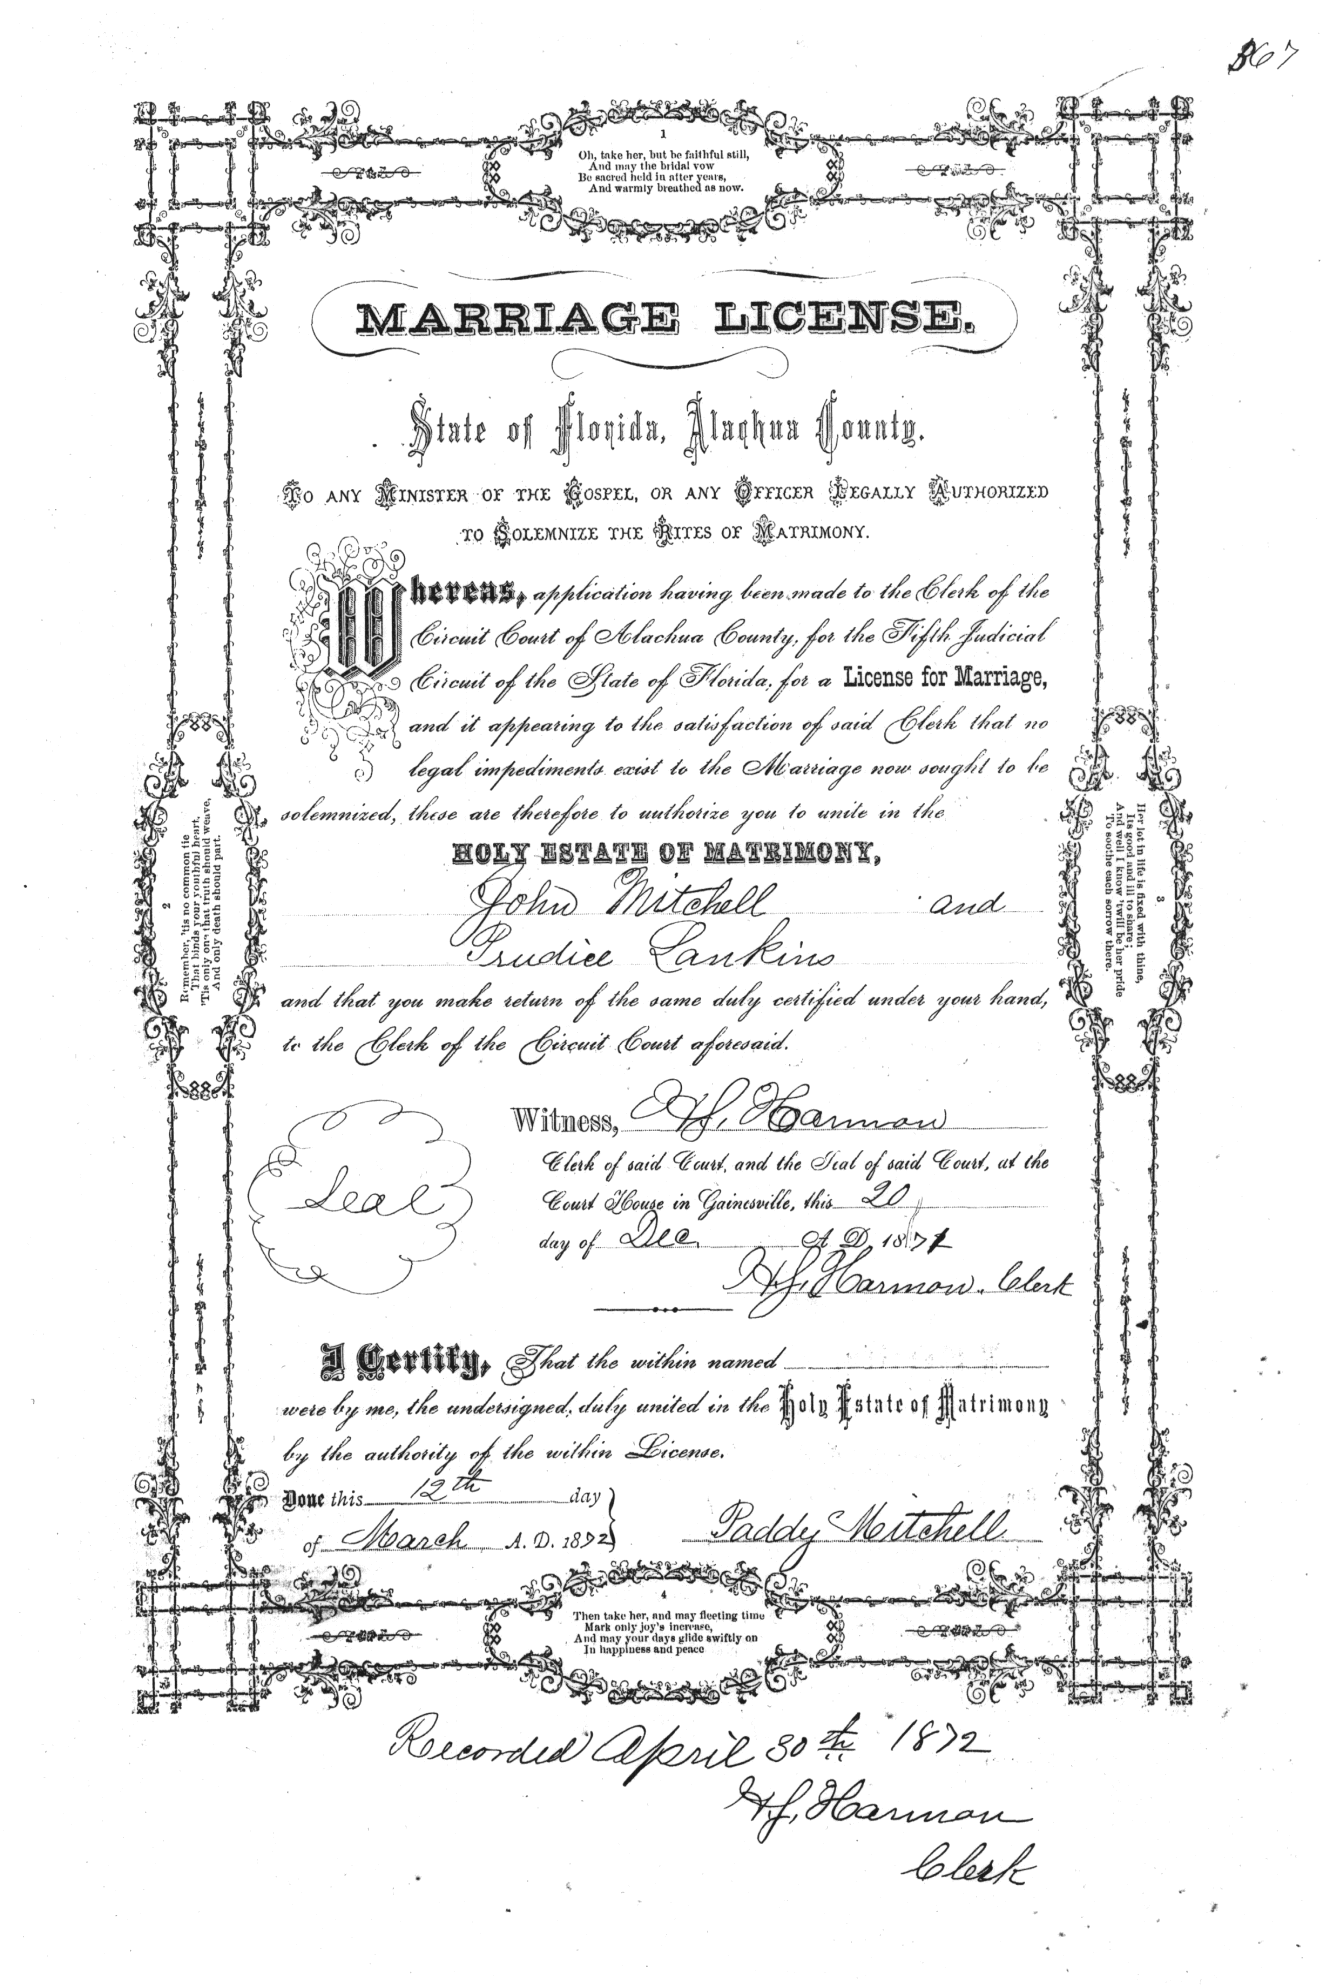 367
1
Oh, take her, but be faithful still,
And may the bridal vow
Be sacred held in after years,
And warmly breathed as now.
MARRIAGE LICENSE.
State of Florida, Alachua County.
TO ANY MINISTER OF THE GOSPEL, OR ANY OFFICER LEGALLY AUTHORIZED
TO SOLEMNIZE THE RITES OF MATRIMONY.
Whereas, application having been made to the Clerk of the
Circuit Court of Alachua County, for the Fifth Judicial
Circuit of the State of Florida, for a License for Marriage,
and it appearing to the satisfaction of said Clerk that no
legal impediments exist to the Marriage now sought to be
solemnized, these are therefore to authorize you to unite in the
HOLY ESTATE OF MATRIMONY,
John Mitchell and
Prudice Lankins
and that you make return of the same duly certified under your hand,
to the Clerk of the Circuit Court aforesaid.
2
Remember, 'tis no common tie
That binds your youthful heart,
'Tis only one that truth should weave,
And only death should part.
3
Her lot in life is fixed with thine,
Its good and ill to share;
And well I know 'twill be her pride
To soothe each sorrow there.
Seal
Witness, H.J. Harmon
Clerk of said Court, and the Seal of said Court, at the
Court House in Gainesville, this 20
day of Dec. A D 1871
H.J. Harmon. Clerk
I Certify, That the within named
were by me, the undersigned, duly united in the Holy Estate of Matrimony
by the authority of the within License.
Done this 12th day
of March A. D. 1872
Paddy Mitchell
4
Then take her, and may fleeting time
Mark only joy's increase,
And may your days glide swiftly on
In happiness and peace
Recorded April 30th 1872
H.J. Harmon
Clerk